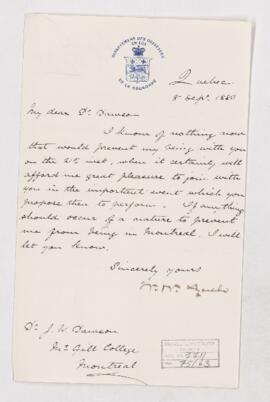 DEPARTEMENT DES OFFICIERS
EN LOI
DE LA COURONNE
Quebec
8 Sept. 1880
My dear Dr Dawson
I know of nothing now
that would prevent my being with you
on the 21st inst, when it certainly will
afford me great pleasure to join with
you in the important event which you
propose then to perform. If anything
should occur of a nature to prevent
me from being in Montreal, I will
let you know.
Sincerely yours
Dr J. W. Dawson
McGill College
Montreal
McGILL UNIVERSITY
ACC. NO. 2211
REF. 75/63